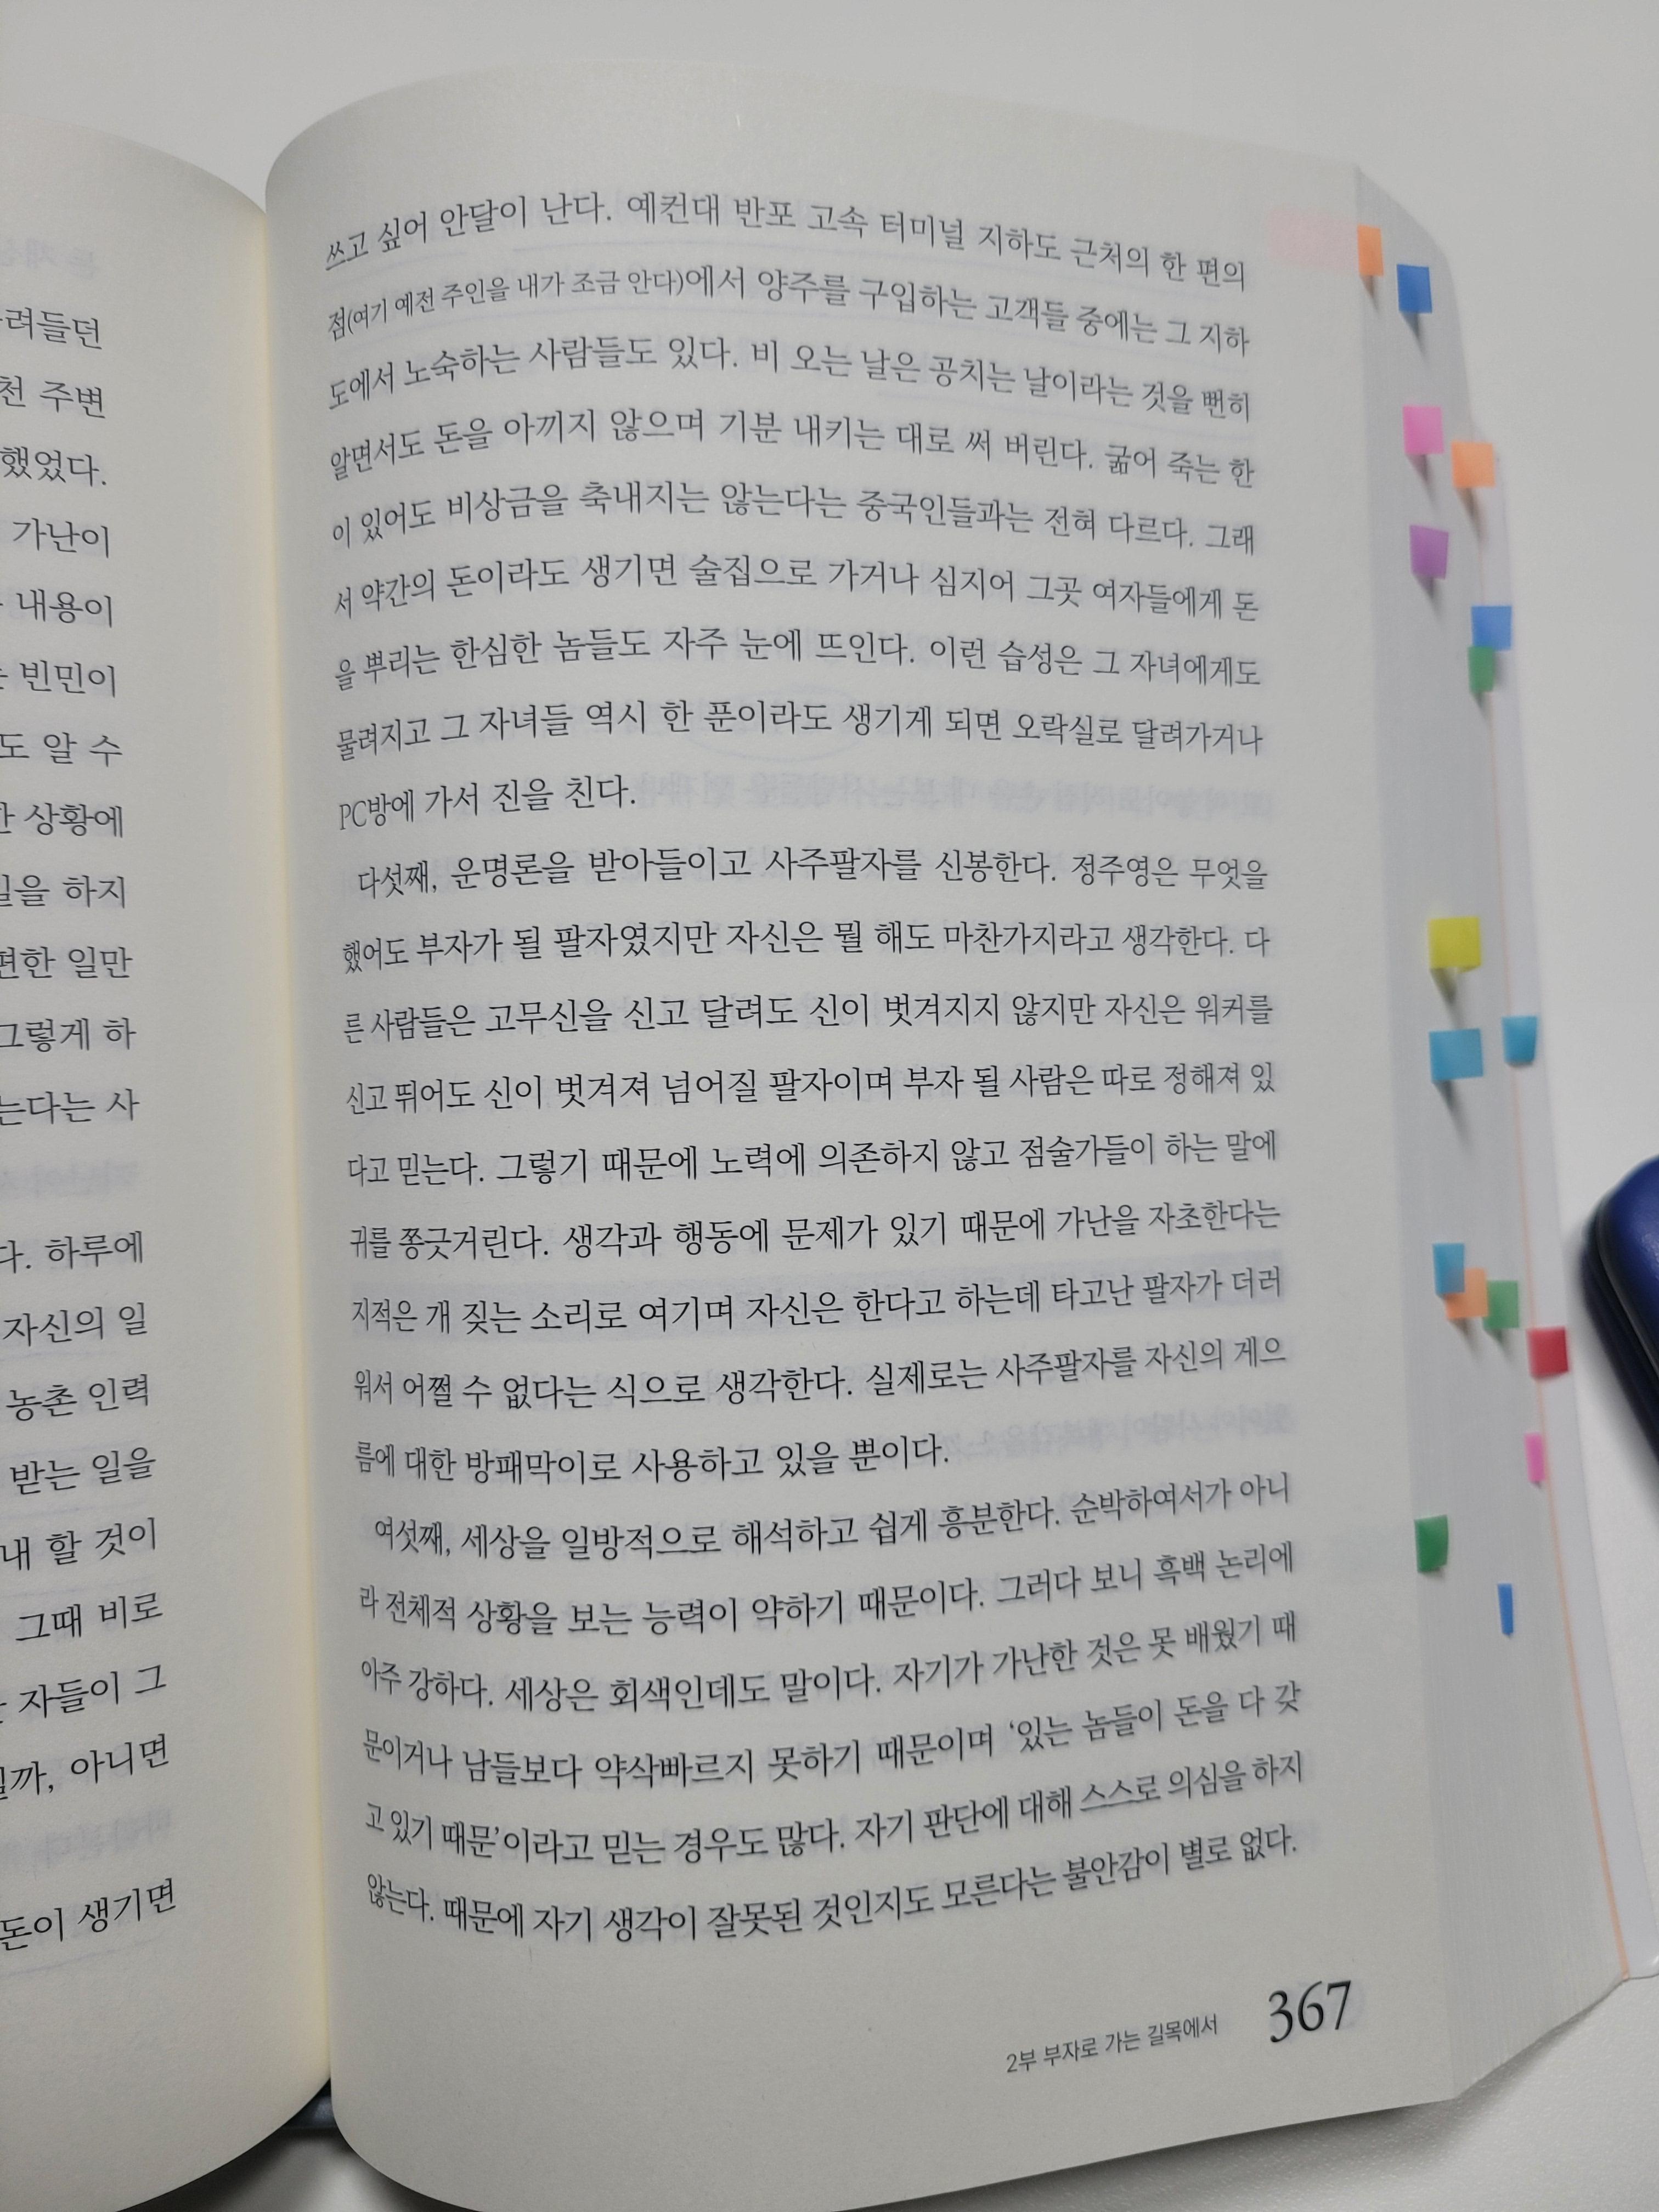 려들던
천 주변
했었다.
가난이
내용이
빈민이
도 알 수
상황에
일을 하지
편한 일만
그렇게 하
는다는 사
다. 하루에
자신의 일
농촌 인력
받는 일을
내 할 것이
그때 비로
자들이 그
일까, 아니면
돈이 생기면
쓰고 싶어 안달이 난다. 예컨대 반포 고속 터미널 지하도 근처의 한 편의
점(여기 예전 주인을 내가 조금 안다)에서 양주를 구입하는 고객들 중에는 그 지하
도에서 노숙하는 사람들도 있다. 비 오는 날은 공치는 날이라는 것을 뻔히
알면서도 돈을 아끼지 않으며 기분 내키는 대로 써 버린다. 굶어 죽는 한
이 있어도 비상금을 축내지는 않는다는 중국인들과는 전혀 다르다. 그래
서 약간의 돈이라도 생기면 술집으로 가거나 심지어 그곳 여자들에게 돈
을 뿌리는 한심한 놈들도 자주 눈에 뜨인다. 이런 습성은 그 자녀에게도
물려지고 그 자녀들 역시 한 푼이라도 생기게 되면 오락실로 달려가거나
PC방에 가서 진을 친다.
다섯째, 운명론을 받아들이고 사주팔자를 신봉한다. 정주영은 무엇을
했어도 부자가 될 팔자였지만 자신은 뭘 해도 마찬가지라고 생각한다. 다
른 사람들은 고무신을 신고 달려도 신이 벗겨지지 않지만 자신은 워커를
신고 뛰어도 신이 벗겨져 넘어질 팔자이며 부자 될 사람은 따로 정해져 있
다고 믿는다. 그렇기 때문에 노력에 의존하지 않고 점술가들이 하는 말에
귀를 쫑긋거린다. 생각과 행동에 문제가 있기 때문에 가난을 자초한다는
지적은 개 짖는 소리로 여기며 자신은 한다고 하는데 타고난 팔자가 더러
워서 어쩔 수 없다는 식으로 생각한다. 실제로는 사주팔자를 자신의 게으
름에 대한 방패막이로 사용하고 있을 뿐이다.
여섯째, 세상을 일방적으로 해석하고 쉽게 흥분한다. 순박하여서가 아니
라 전체적 상황을 보는 능력이 약하기 때문이다. 그러다 보니 흑백 논리에
아주 강하다. 세상은 회색인데도 말이다. 자기가 가난한 것은 못 배웠기 때
문이거나 남들보다 약삭빠르지 못하기 때문이며 ‘있는 놈들이 돈을 다 갖
고 있기 때문’이라고 믿는 경우도 많다. 자기 판단에 대해 스스로 의심을 하지
않는다. 때문에 자기 생각이 잘못된 것인지도 모른다는 불안감이 별로 없다.
2부 부자로 가는 길목에서 367